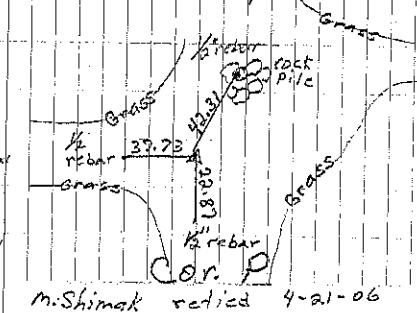 Grass
1/2" rebar
rock
pile
Grass
42.31
1/2
rebar
37.73
Grass
22.87
Grass
1/2" rebar
Cor. P
M. Shimak retied 4-21-06